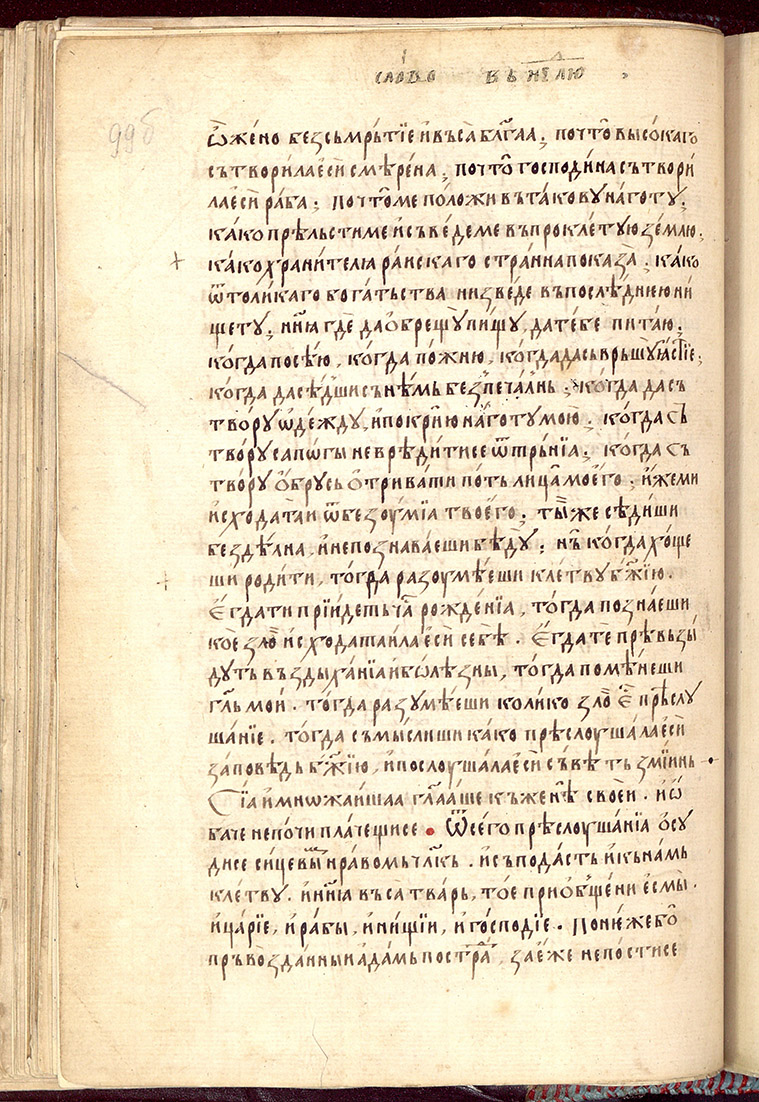 сло́во въ нє҃лю
99б
ѿжено̀ безсьмрь́тїе и҆ въса̀ бл҃гаа; почто̀ высо́каго
сътвори́ла є҆сѝ смѣре́на; почто̀ господи́на сътвори́
ла є҆сѝ ра́ба; почто̀ ме положѝ въ та́кову наготу̀;
ка́ко прѣльсти́ ме и҆ съве́де ме въ прокле́тую зе́млю;
ка́ко храни́телꙗ ра́искаго стра́нна показа̀; ка́ко
ѿ толи́каго бога́тьства низве́де въ послѣ́днюю ни
щету̀; нн҃ꙗ гдѐ да ѻ҆бре́щу пи́щу, да те́бе пита́ю;
ко́гда посѣ́ю, ко́гда по́жню, ко́гда да съврьшу̀ ꙗ҆́стїе;
ко́гда да се́дши съ нѣ́мь безпеча́лнь; ко́гда да съ
тво́ру ѡ҆де́жду, и҆ покры́ю наготу̀ мою̀; ко́гда съ
тво́ру сапо́гы не врѣди́ти се ѿ трь́нїа; ко́гда съ
тво́ру ѻ҆́брусь ѻ҆трива́ти поть лица̀ моє҆го; и҆́же ми
и҆схода́таи ѿ безоу́мїа твоє҆́го; ты́ же сѣди́ши
безде́лна, и҆ не познава́еши бѣ́ду; нъ̀ ко́гда хо́ще
ши роди́ти, то́гда разоумѣ́еши кле́тву бж҃їю.
Є҆гда ти прїи́деть ча́с рожде́нїа, то́гда позна́еши
ко́е зло̀ и҆схода́таила є҆сѝ себѣ̀. Є҆гда те прѣвьзы́
дуть въздыха́нїа и҆ бѡлѣ́зны, то́гда поме́неши
гл҃ы моѝ. то́гда разумѣ́еши коли́ко зло̀ є҆с прѣслу
ша́нїе. тогда съмы́слиши ка́ко прѣслоуша́ла є҆сѝ
за́повѣдь бж҃їю, и҆ послоуша́ла є҆сѝ съвѣ́ть змїи́нь
Сїа и҆ мнѡжа́ишаа гл҃аше къ женѣ̀ свое́и. и҆ ѡ҆
баче не по́чи пла́чещи се. Ѿ сего̀ прѣслоуша́нїа ѻ҆су
ди се си́цевыи нра́вом чл҃кь. и҆ съпода́сть и҆ къ на́мь
кле́тву. и҆ нн҃ꙗ въса̀ тва́рь, то́е прио҆́бщени є҆смы̀.
и҆ ца́рїе, и҆ ра́бы, и҆ ни́щїи, и҆ го́сподїе. Поне́же бо̀
прьвозда́нныи а҆да́мь постра, за є҆́же не по́сти се